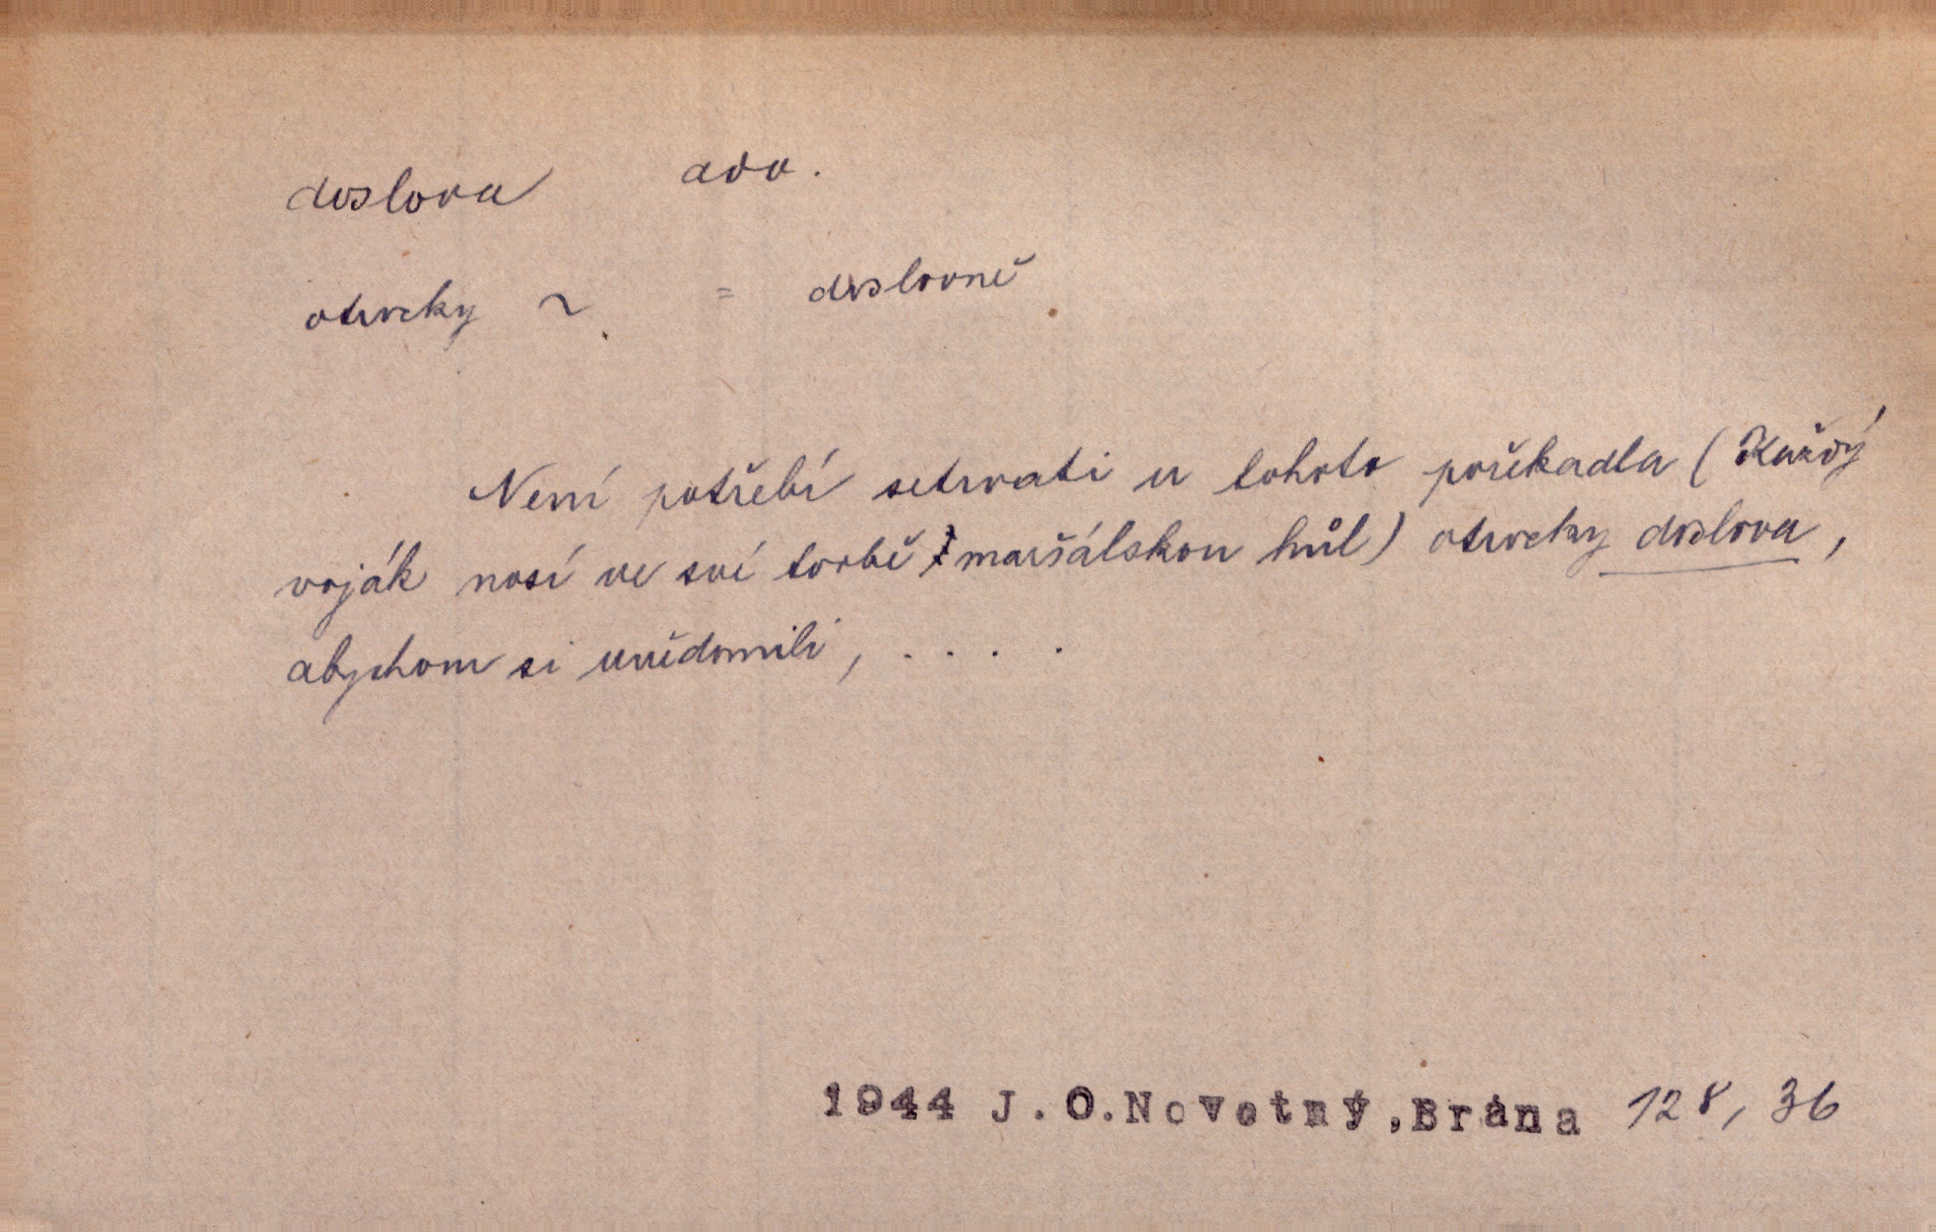 doslova adv.
otrocky ~ = doslovně
Není potřebí setrvati u tohoto pořekadla (Každý
voják nosí ve své torbě maršálskou hůl) otrocky doslova,
abychom si uvědomili, . . . .
1944 J.O.Novotný,Brána 128, 36